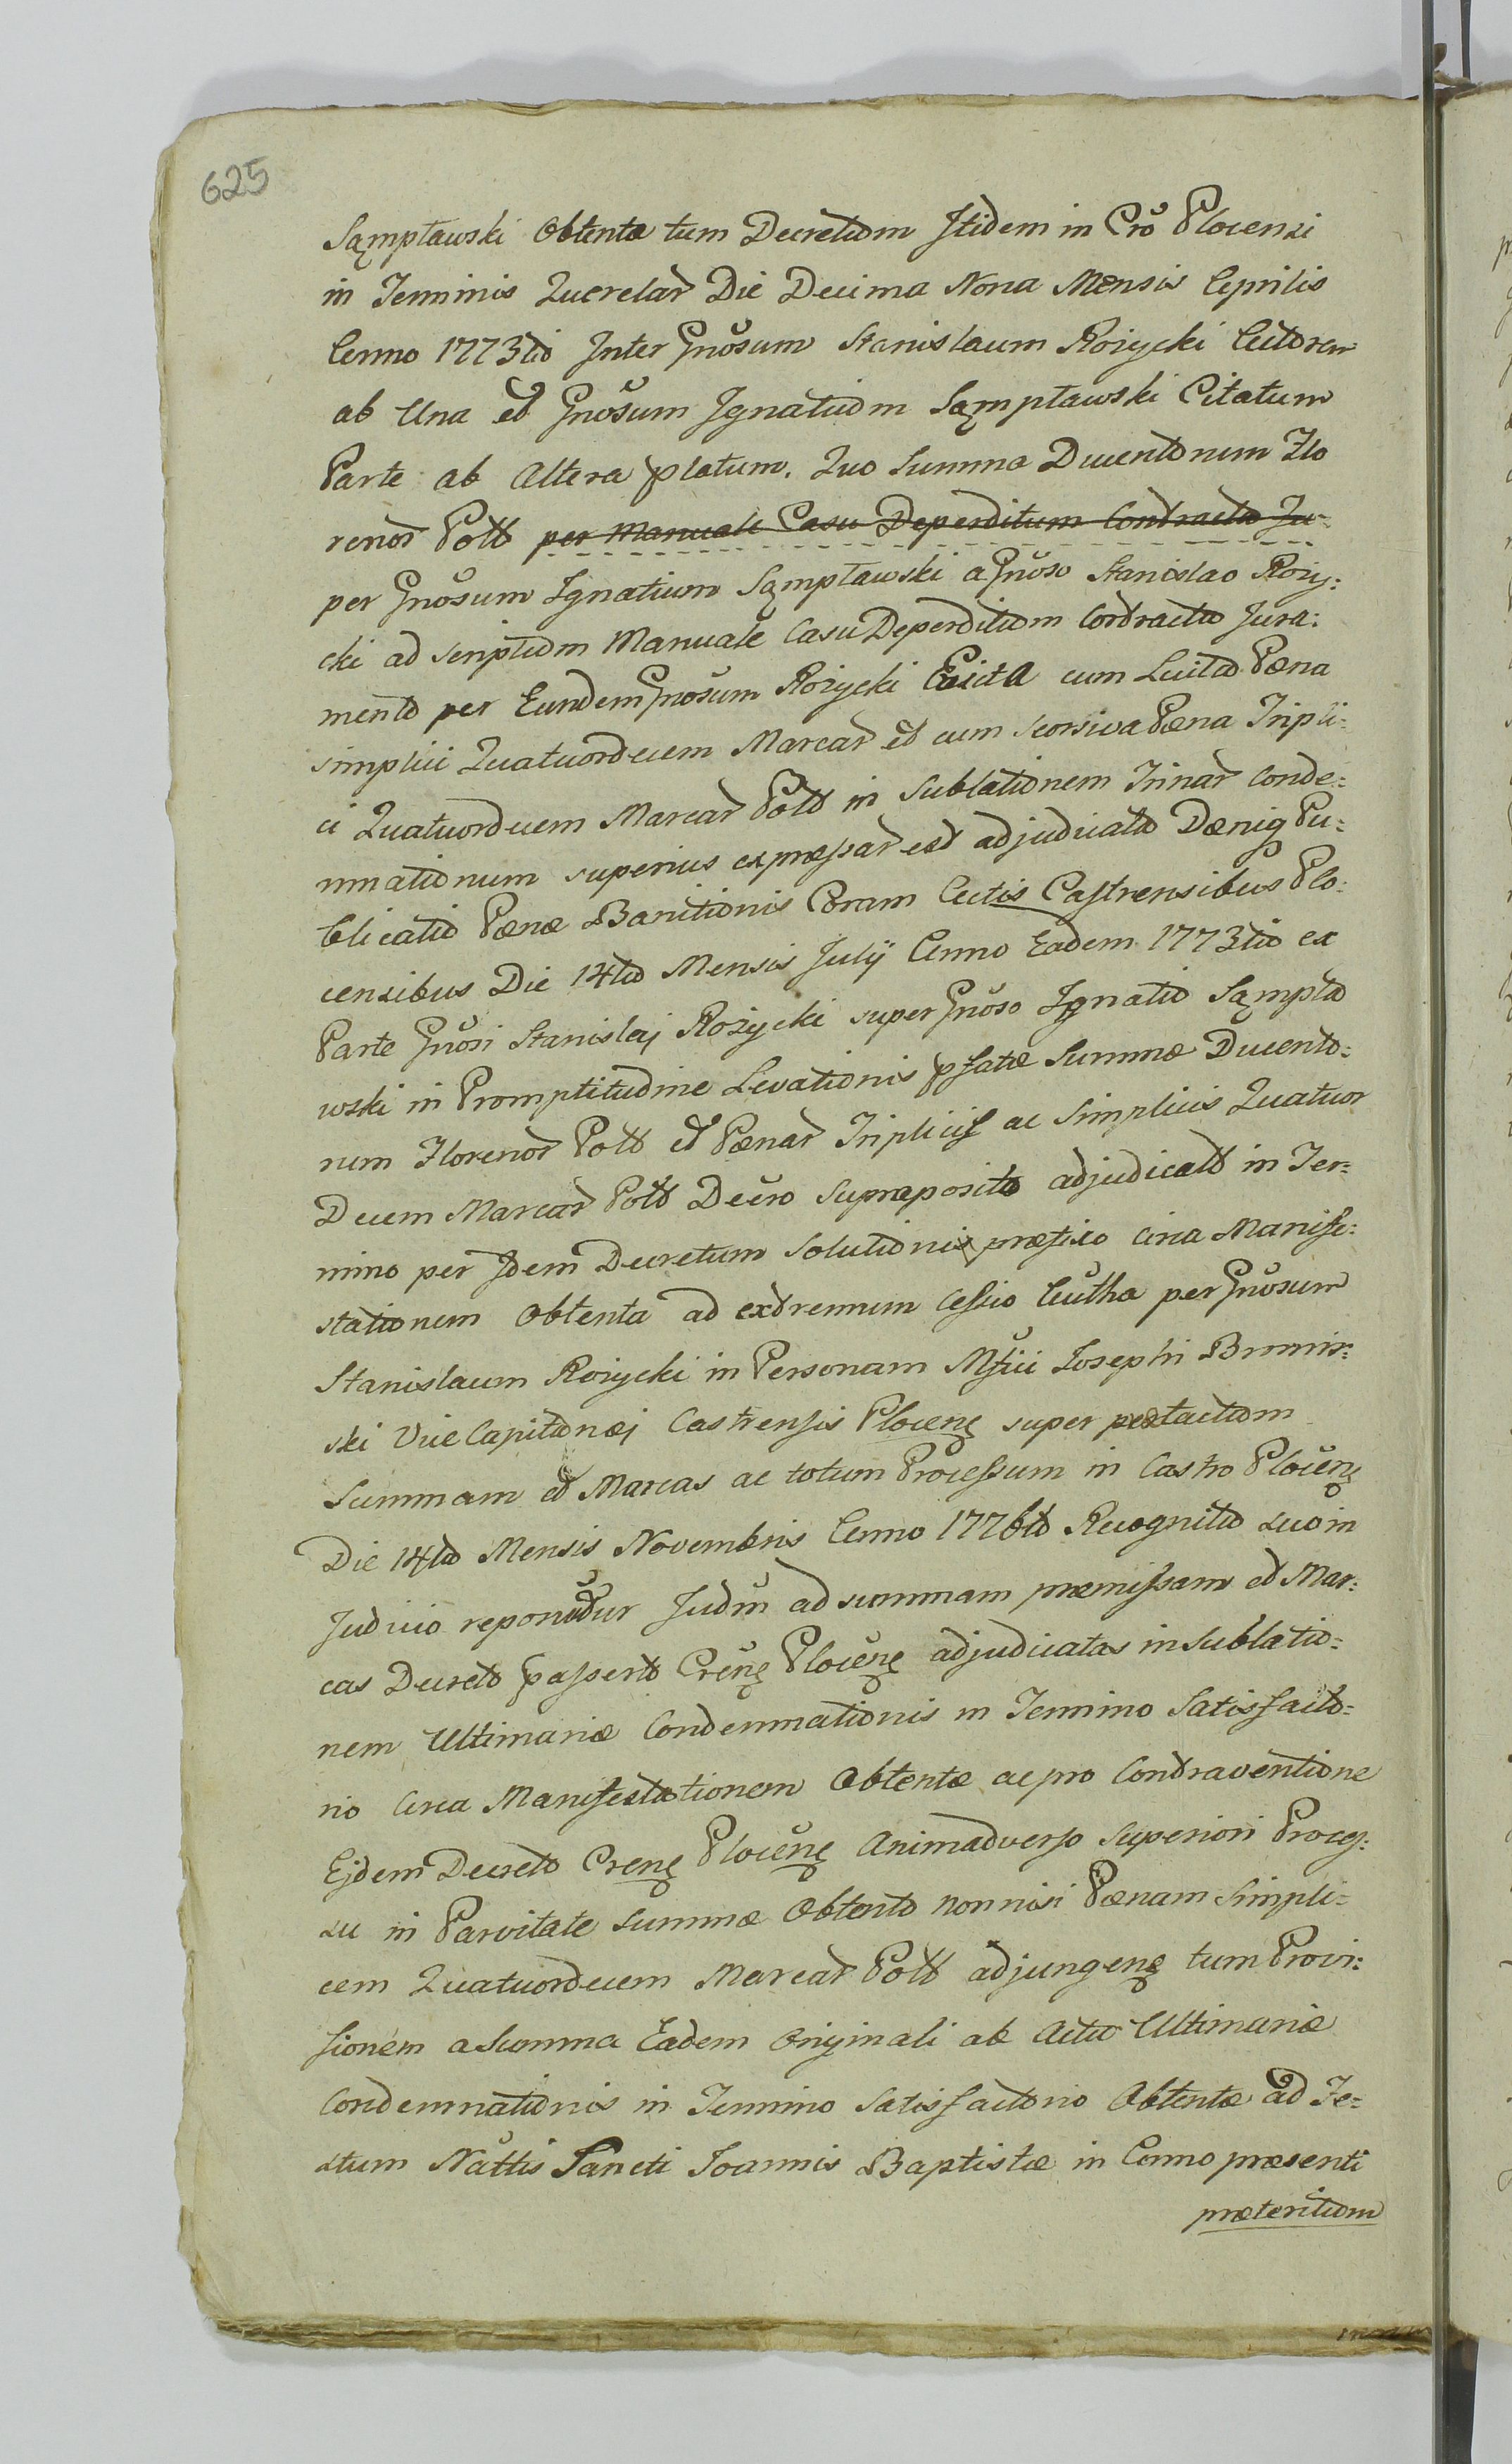 625
Sąmpławski Obtenta tum Decretum Itidem in Cro Plocensi
in Terminis Querelar Die Decima Nona Mensis Aprilis
Anno 1773tio Inter Gnosum Stanislaum Rożycki Actorem
ab Una et Gnosum Ignatium Sąmpławski Citatum
Parte ab Altera platum. Quo Summa Ducentorum Flo
renor Poll per Manuale Casu Deperditum Contracta Ju-
per Gnosum Ignatium Sąmpławski a Gnoso Stanislao Roży:
cki ad scriptum Manuale Casu Deperditum Contracta Jura:
mento per Eundem Gnosum Rożycki Evicta cum Luito Pœna
simplici Quatuordecem Marcar et cum seorsiva Pœna Tripli:
ci Quatuordecem Marcar Poll in Sublationem Trinar Conde:
mnationum superius expressar est adjudicata Deniq Pu:
blicatio Pœnæ Banitionis Coram Actis Castrensibus Plo:
censibus Die 14to Mensis Julÿ Anno Eadem 1773tio ex
Parte Gnosi Stanislaj Rożycki super Gnoso Ignatio Sąmpła
wski in Promptitudine Levationis pfatæ Summæ Ducento:
rum Florenor Poll et Pœnar Triplicis ac Simplicis Quatuor
Decem Marcar Poll Decro Supraposito adjudicatt in Ter:
mino per Idem Decretum Solutionis præfixo circa Manife:
stationem Obtenta ad extremum Cessio Autha per Gnosum
Stanislaum Rożycki in Personam Mfici Josephi Bromir:
ski Vice Capitanæj Castrensis Plocenę super prætactam
Summam et Marcas ac totum Processum in Castro Plocenę
Die 14to Mensis Novembris Anno 1776to Recognita Quo in
Judicio reponuntur Judm ad summam præmissam et Mar:
cas Decreto passerto Crenę Plocenę adjudicatas in Sublatio:
nem Ultimariæ Condemnationis in Termino Satisfacto:
rio Circa Manifestationem Obtentæ ac pro Contraventione
Ejdem Decreto Crenę Plocenę Animadverso Superiori Proces:
su in Parvitate Summæ Obtento nonnisi Pœnam Simpli:
cem Quatuordecem Marcar Poll adjungenę tum Provi:
sionem a Summa Eadem Originali ab Actu Ultimariæ
Condemnationis in Termino Satisfactorio Obtentæ ad Fe:
stum Nattis Sancti Joannis Baptistæ in Anno præsenti
præteritum